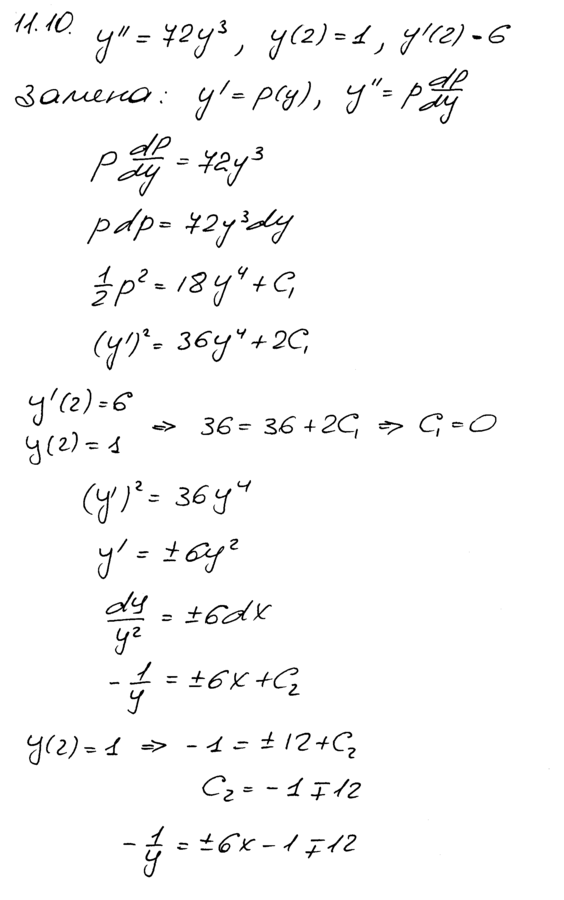 11.10. y'' = 72y³, y(2) = 1, y'(2) - 6
Замена: y' = p(y), y'' = p dp/dy
p dp/dy = 72y³
pdp = 72y³dy
1/2 p² = 18y⁴ + C₁
(y')² = 36y⁴ + 2C₁
y'(2) = 6
y(2) = 1 ⇒ 36 = 36 + 2C₁ ⇒ C₁ = 0
(y')² = 36y⁴
y' = ±6y²
dy/y² = ±6dx
-1/y = ±6x + C₂
y(2) = 1 ⇒ -1 = ±12 + C₂
C₂ = -1 ∓ 12
-1/y = ±6x - 1 ∓ 12